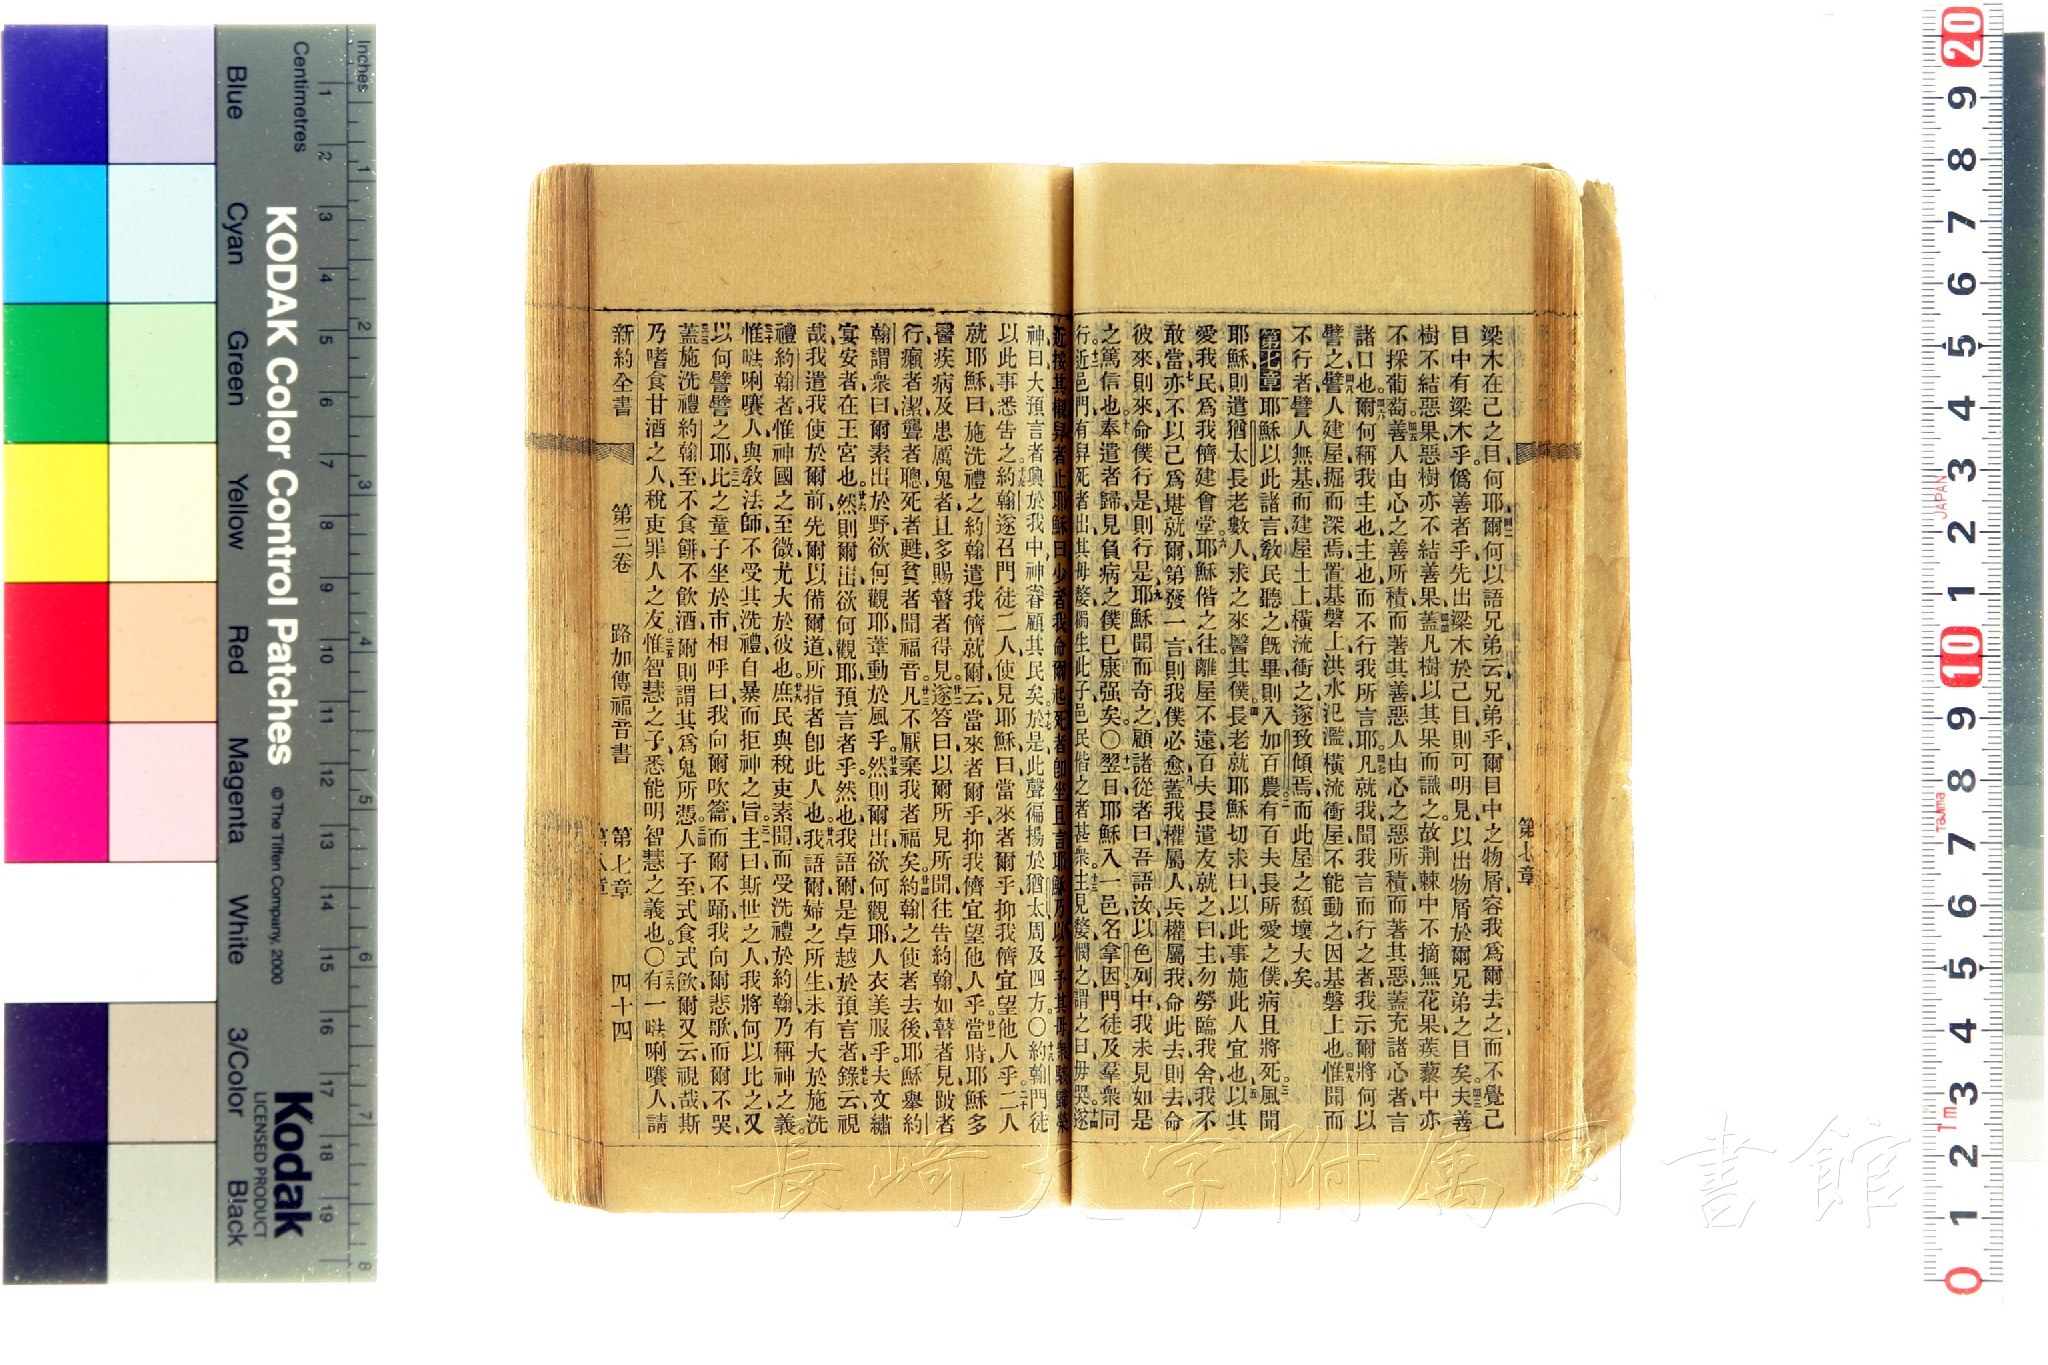 第七章
梁木在己之目何耶爾何以語兄弟云兄弟乎爾目中之物屑容我爲爾去之而不覺己
目中有梁木乎僞善者乎先出梁木於己目則可明見以出物屑於爾兄弟之目矣夫善
樹不結惡果惡樹亦不結善果蓋凡樹以其果而識之故荆棘中不摘無花果蒺藜中亦
不採葡萄善人由心之善所積而著其善惡人由心之惡所積而著其惡蓋充諸心者言
諸口也爾何稱我主也主也而不行我所言耶凡就我聞我言而行之者我示爾將何以
譬之譬人建屋掘而深焉置基磐上洪水氾濫橫流衝屋不能動之因基磐上也惟聞而
不行者譬人無基而建屋土上橫流衝之遂致傾焉而此屋之頹壞大矣
第七章 耶穌以此諸言敎民聽之旣畢則入加百農有百夫長所愛之僕病且將死風聞
耶穌則遣猶太長老數人求之來醫其僕長老就耶穌切求曰以此事施此人宜也以其
愛我民爲我儕建會堂耶穌偕之往離屋不遠百夫長遣友就之曰主勿勞臨我舍我不
敢當亦不以己爲堪就爾第發一言則我僕必愈蓋我權屬人兵權屬我命此去則去命
彼來則來命僕行是則行是耶穌聞而奇之顧諸從者曰吾語汝以色列中我未見如是
之篤信也奉遣者歸見負病之僕已康强矣〇翌日耶穌入一邑名拿因門徒及羣衆同
行近邑門有舁死者出其母嫠獨生此子邑民偕之者甚衆主見嫠憫之謂之曰毋哭遂
近按其櫬舁者止耶穌曰少者我命爾起死者卽坐且言耶穌乃以子予其母衆駭歸榮
神曰大預言者興於我中神眷顧其民矣於是此聲徧揚於猶太周及四方〇約翰門徒
以此事悉吿之約翰遂召門徒二人使見耶穌曰當來者爾乎抑我儕宜望他人乎二人
就耶穌曰施洗禮之約翰遣我儕就爾云當來者爾乎抑我儕宜望他人乎當時耶穌多
醫疾病及患厲鬼者且多賜瞽者得見遂答曰以爾所見所聞往吿約翰如瞽者見跛者
行癩者潔聾者聰死者甦貧者聞福音凡不厭棄我者福矣約翰之使者去後耶穌舉約
翰謂衆曰爾素出於野欲何觀耶葦動於風乎然則爾出欲何觀耶人衣美服乎夫文繡
宴安者在王宮也然則爾出欲何觀耶預言者乎然也我語爾是卓越於預言者錄云視
哉我遣我使於爾前先爾以備爾道所指者卽此人也我語爾婦之所生未有大於施洗
禮約翰者惟神國之至微尤大於彼也庶民與稅吏素聞而受洗禮於約翰乃稱神之義
惟㕸唎㘔人與敎法師不受其洗禮自暴而拒神之旨主曰斯世之人我將何以比之又
以何譬譬之耶比之童子坐於市相呼曰我向爾吹籥而爾不踊我向爾悲歌而爾不哭
蓋施洗禮約翰至不食餅不飮酒爾則謂其爲鬼所憑人子至式食式飮爾又云視哉斯
乃嗜食甘酒之人稅吏罪人之友惟智慧之子悉能明智慧之義也〇有一㕸唎㘔人請
新約全書 第三卷 路加傳福音書 第七章 四十四
第八章
長崎大学附属図書館
Inches
Centimetres
KODAK Color Control Patches
© The Tiffen Company, 2000
Blue
Cyan
Green
Yellow
Red
Magenta
White
3/Color
Black
Kodak
LICENSED PRODUCT
1 2 3 4 5 6 7 8 9 10 11 12 13 14 15 16 17 18 19
1 2 3 4 5 6 7 8
20 9 8 7 6 5 4 3 2 1 10 9 8 7 6 5 4 3 2 1 0
JAPAN
Tajima
Tm